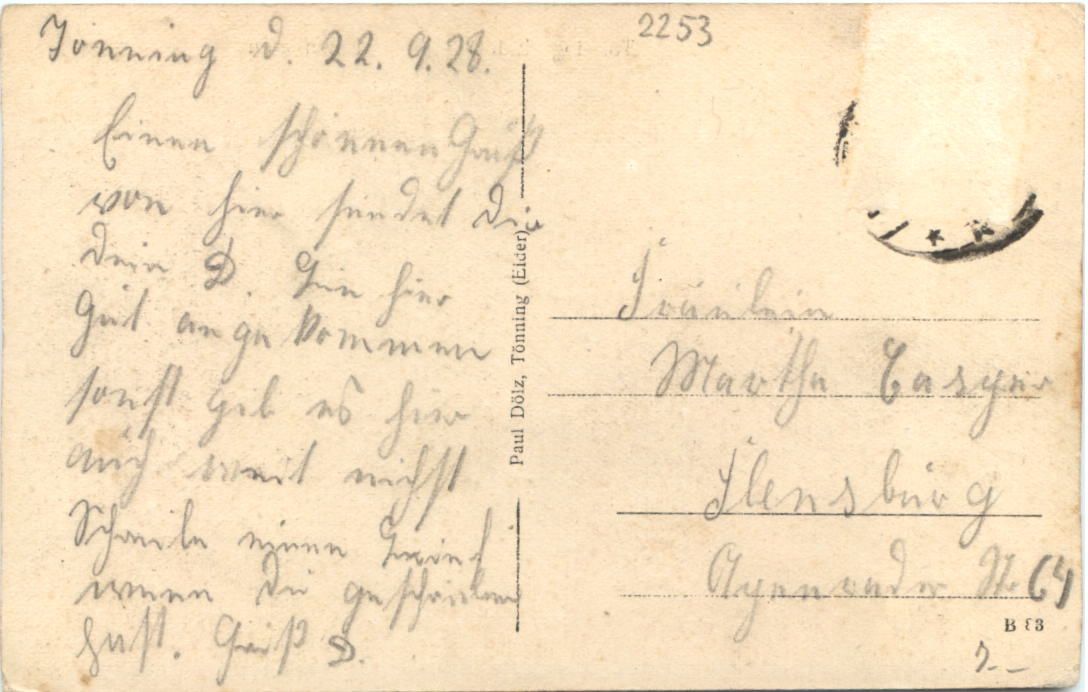 2253
Tönning d. 22. 9. 28.
Einen schönnen Gruß
von hier sendet Dir
Dein D. Bin hier
Gut angekommen
sonst geb es hier
auch weit nichst
Schreibe einen Brief
wenn Du geschrieben
hast. Gruß D.
Paul Dölz, Tönning (Eider)
Fräulein
Martha Casper
Flensburg
Apenrader Str. 64
B 83